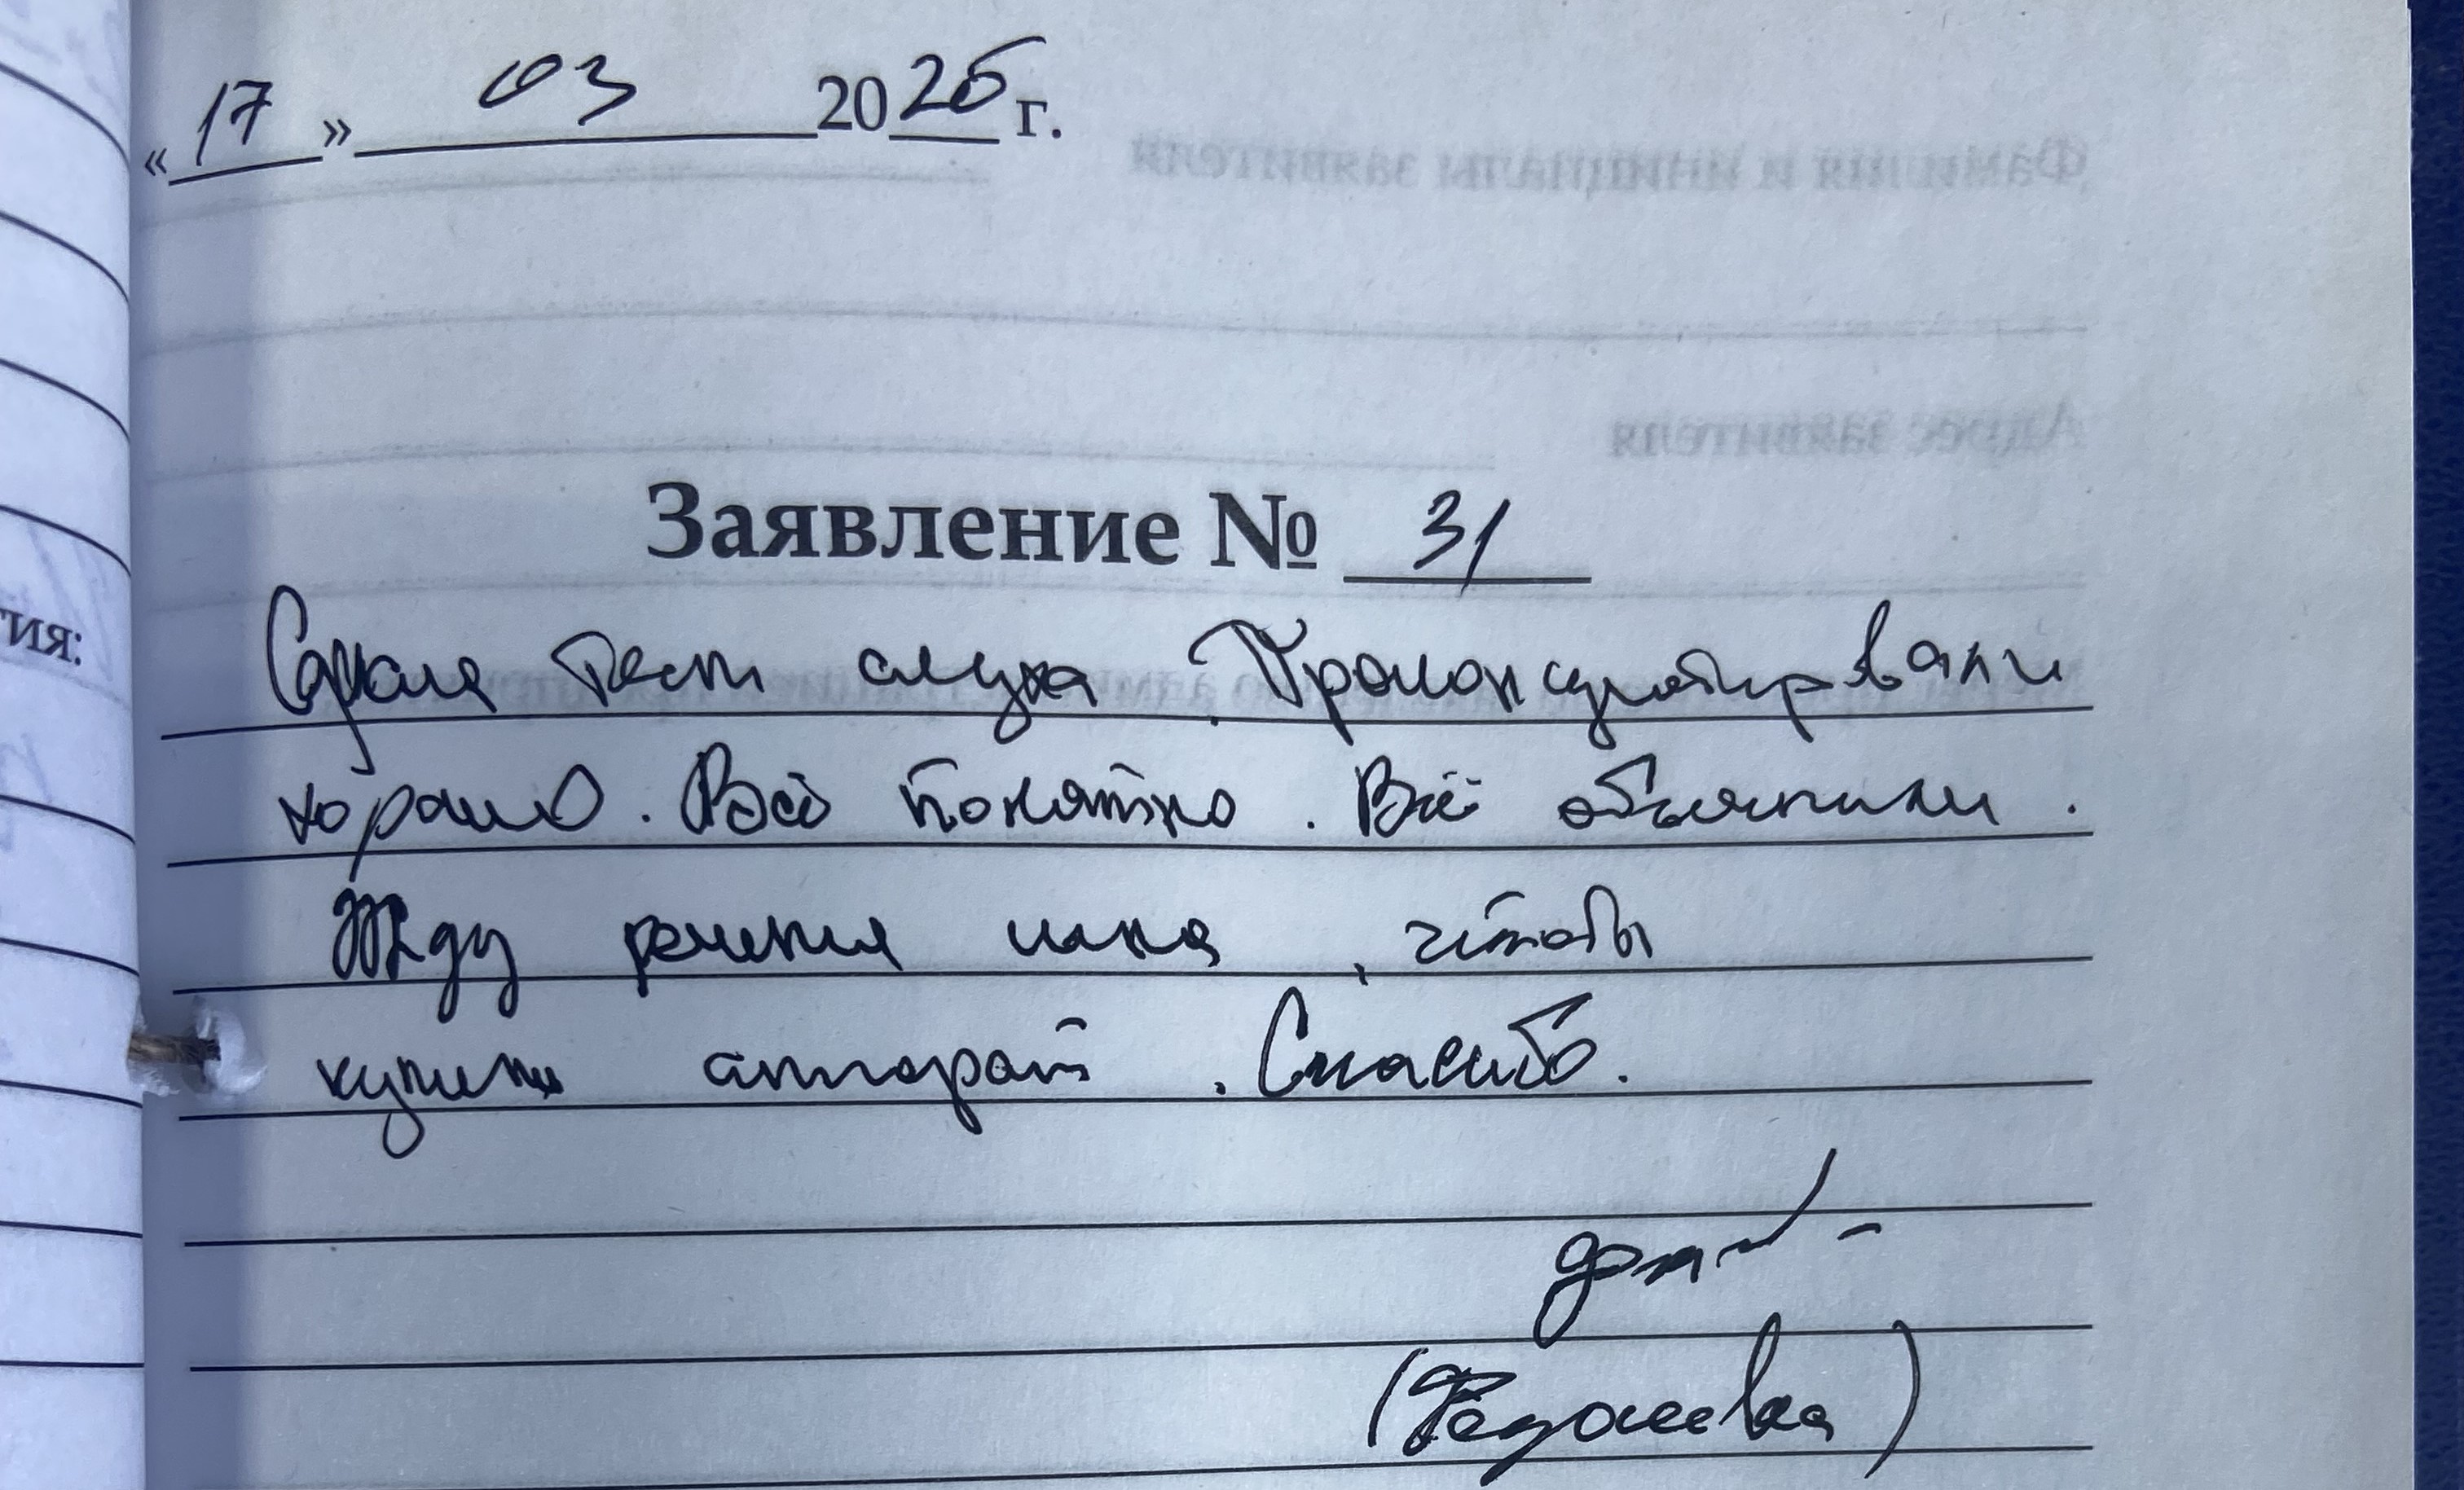 «17» 03 2026 г.
Заявление № 31
Сделала тест слуха. Проконсультировали
хорошо. Всё понятно. Всё объяснили.
Жду решения мужа, чтобы
купить аппарат. Спасибо.
тия: